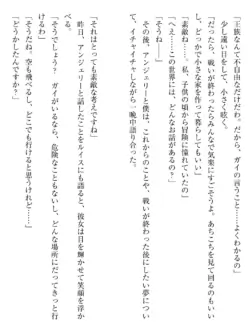 王族なんて不自由なだけだわ。だから、ガイの言うこと……よくわかるの」
少し遠い目をして、小さく呟く。
「だったら、戦いが終わったらみんなで気楽にすごそうよ。あちこちを見て回るのもいい
し、どっかで小さな家を作って暮らしてもいい」
「それは素敵ね。私、子供の頃から冒険に憧れていたの」
「へえ……この世界には、どんなお話があるの？」
「そうね」
その後、アンジェリーと僕は、これからのことや、戦いが終わった後にしたい夢につい
て、イチャイチャしながら一晩中語り合った。
「それはとっても素敵な考えですね」
昨日、アンジェリーと話したことをルイスにも語ると、彼女は目を輝かせて笑顔を浮か
べる。
「そうでしょう？　ガイがいるなら、危険なこともないし、どんな場所にだってきっと行
けるわ」
「そうだね。空も飛べるし、どこでも行けると思うけれど……」
「どうかしたんですか？」